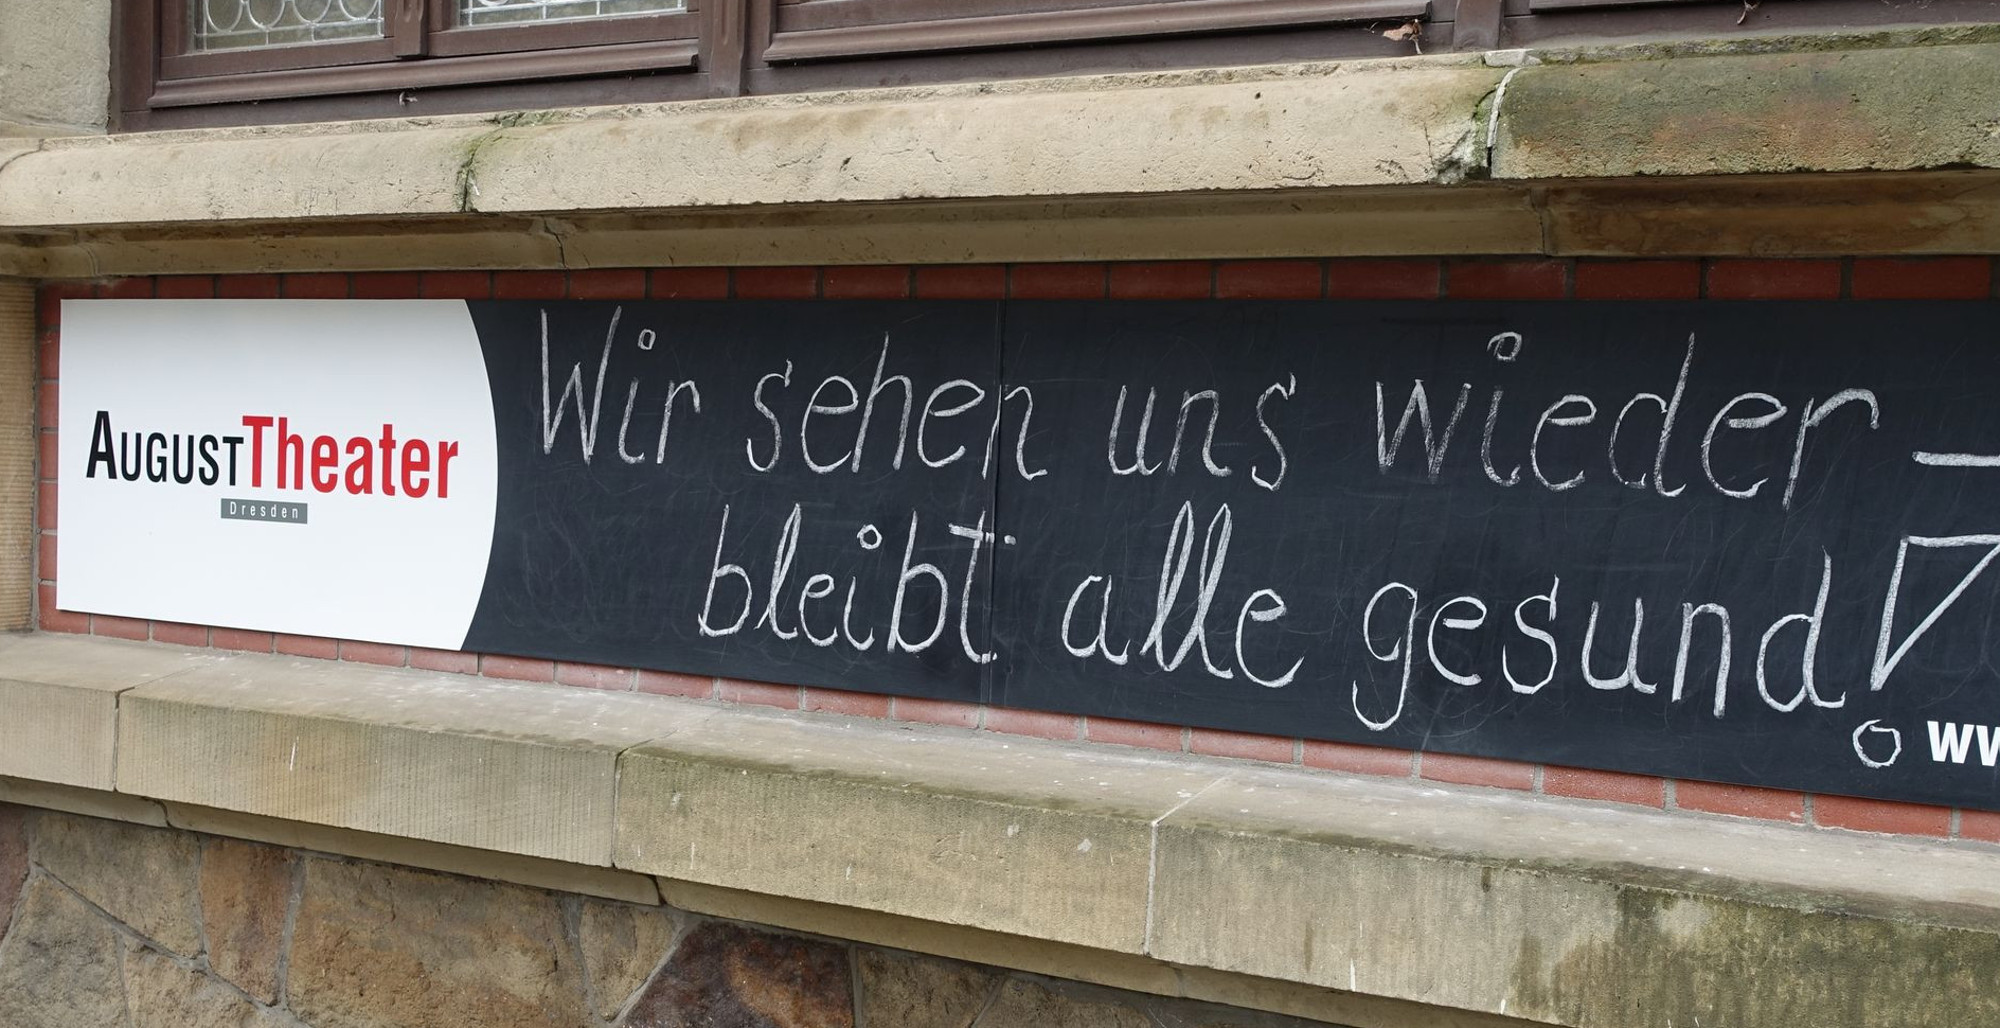 AUGUSTTheater
Dresden
Wir sehen uns wieder –
bleibt alle gesund!